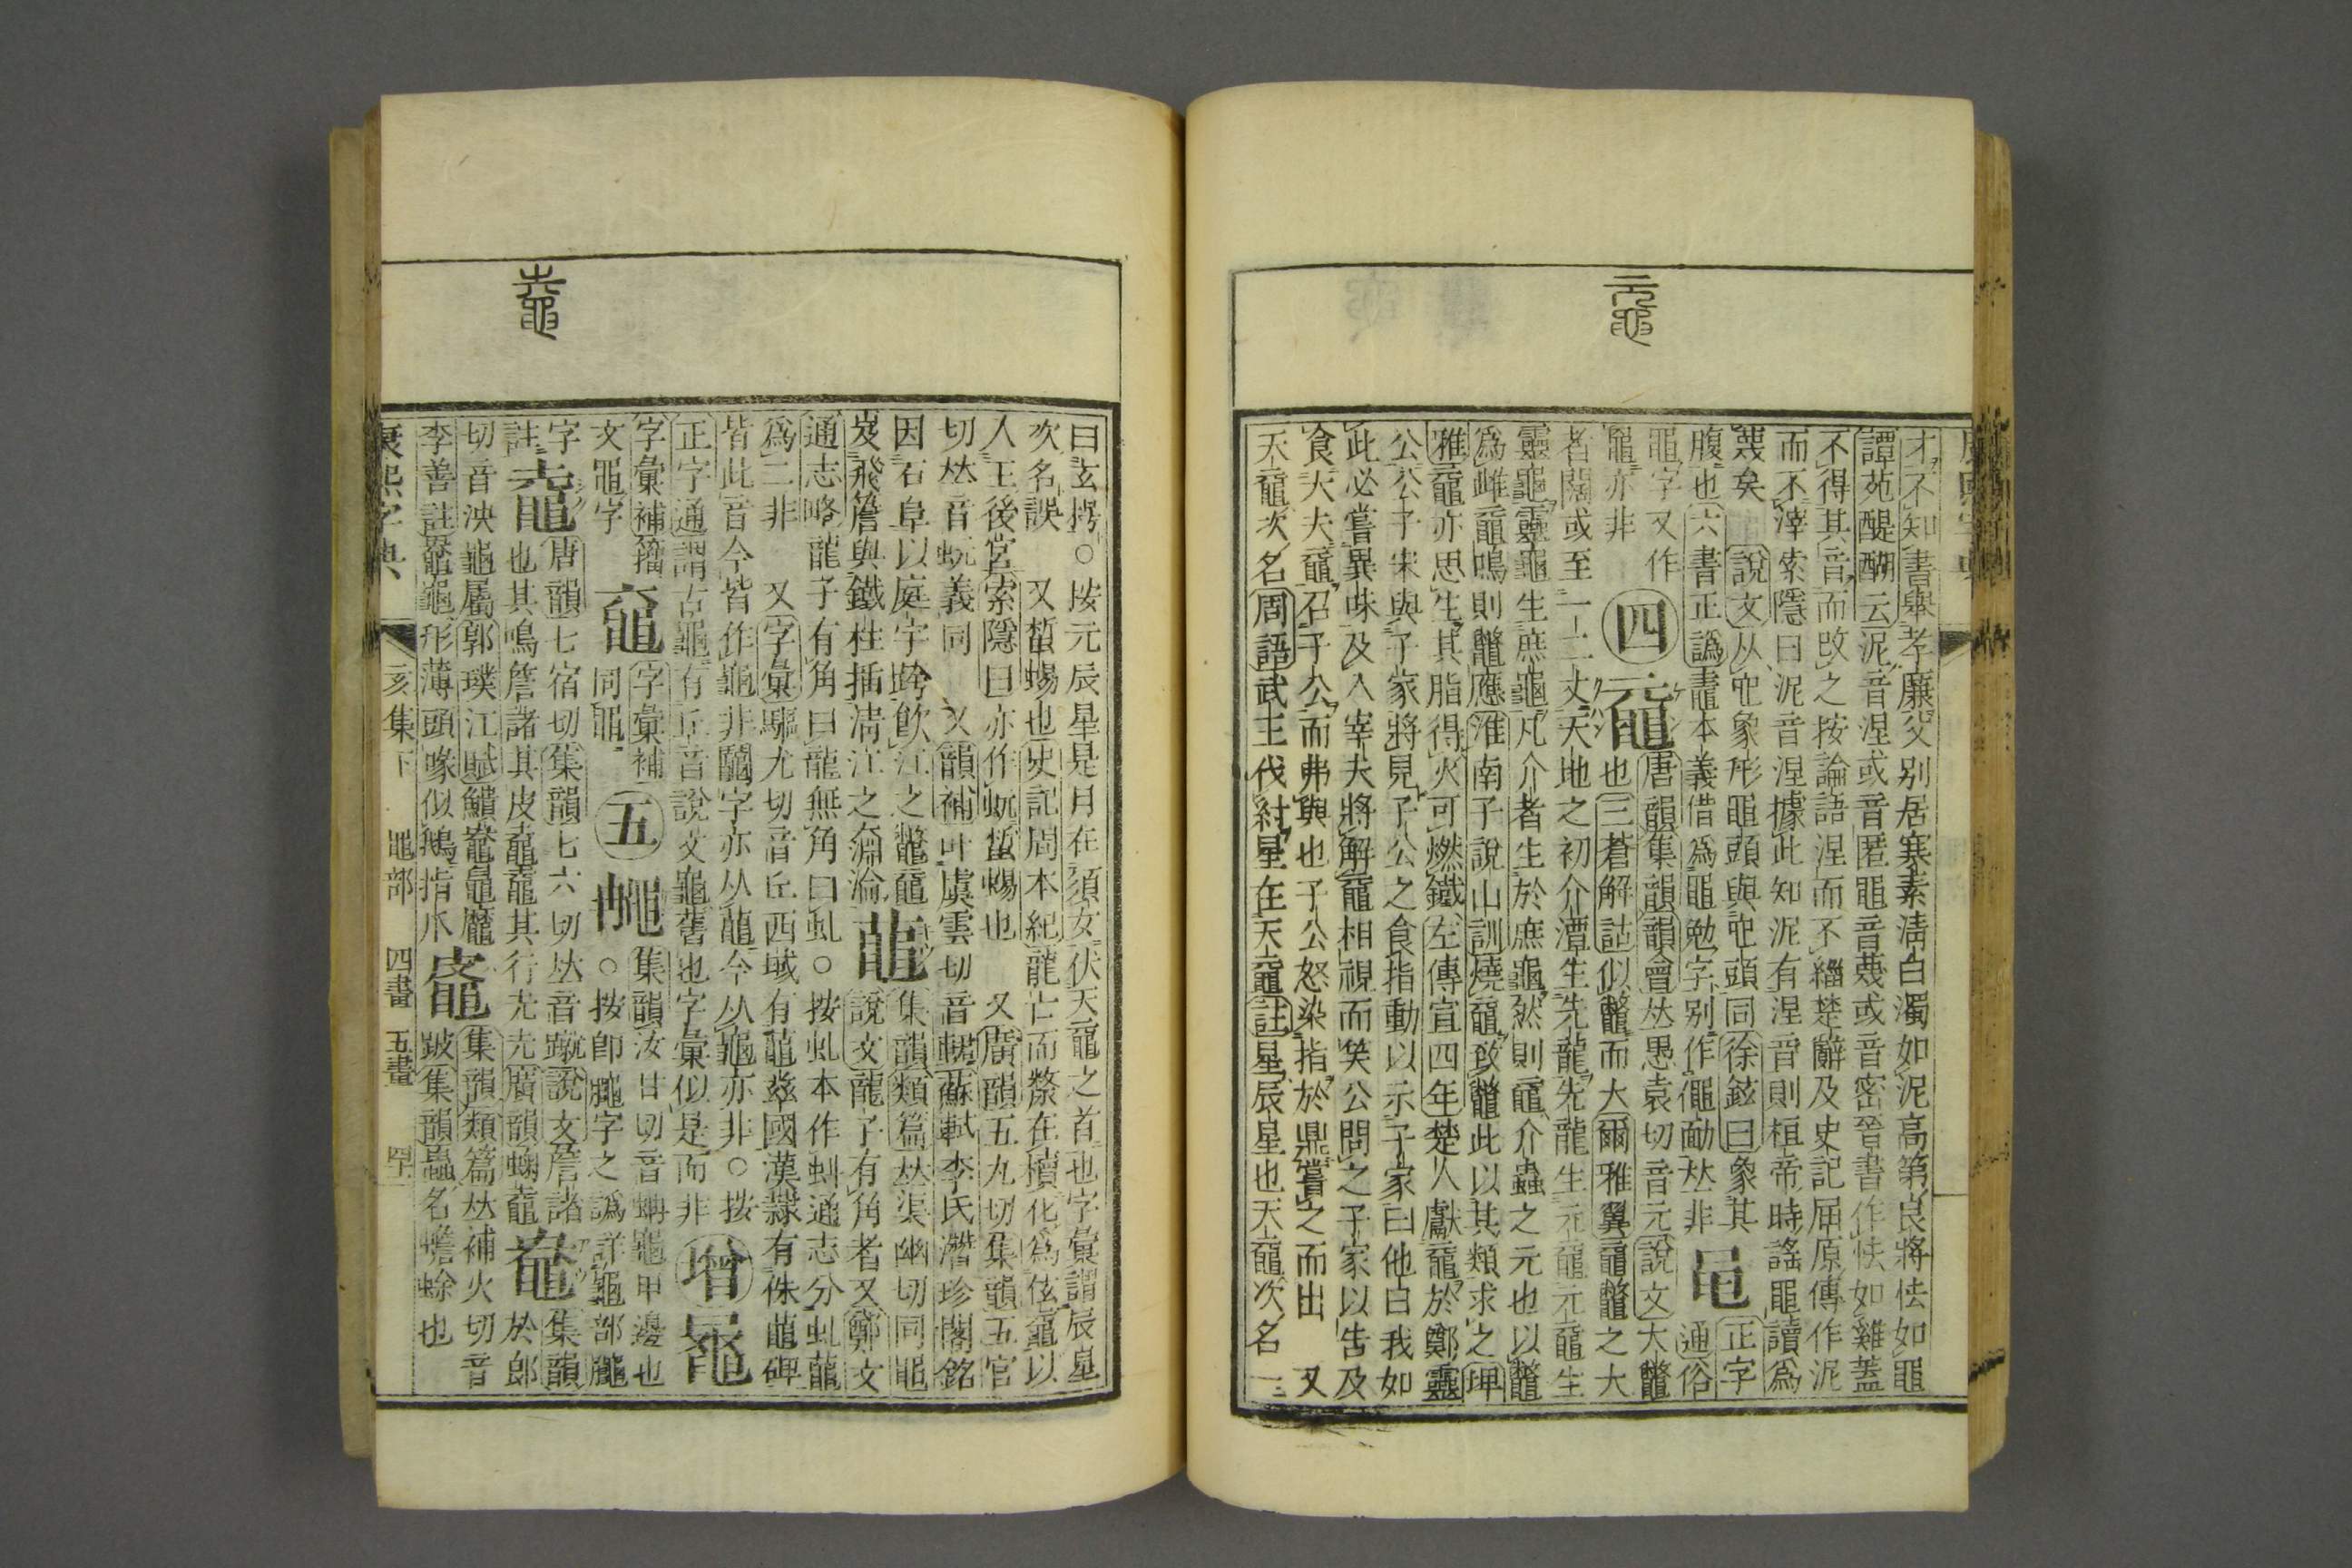 才不知書舉孝廉父別居寒素淸白濁如泥高第良將怯如黽
譚苑醍醐云泥音涅或音匿黽音蔑或音密晉書作怯如雞蓋
不得其音而改之按論語涅而不緇楚辭及史記屈原傳作泥
而不滓索隱曰泥音涅據此知泥有涅音則桓帝時謠黽讀爲
蔑矣 說文从它象形黽頭與它頭同徐鉉曰象其
腹也六書正譌鼃本義借爲黽勉字別作僶勔𠀤非
黽字又作
黿亦非
黽
正字
通俗
四
黿
唐韻集韻韻會𠀤愚袁切音元說文大鼈
也三蒼解詁似鼈而大爾雅翼黿鼈之大
者闊或至一二丈天地之初介潭生先龍先龍生元黿元黿生
靈龜靈龜生庶龜凡介者生於庶龜然則黿介蟲之元也以鼈
爲雌黿鳴則鼈應淮南子說山訓燒黿致鼈此以其類求之埤
雅黿亦思生其脂得火可燃鐵左傳宣四年楚人獻黿於鄭靈
公公子宋與子家將見子公之食指動以示子家曰他日我如
此必嘗異味及入宰夫將解黿相視而笑公問之子家以告及
食大夫黿召子公而弗與也子公怒染指於鼎嘗之而出 又
天黿次名周語武王伐紂星在天黿註星辰星也天黿次名一
曰玄枵○按元辰星是月在須女伏天黿之首也字彙謂辰星
次名誤 又蜥蜴也史記周本紀龍亡而漦在櫝化爲伭黿以
人王後宮索隱曰亦作蚖蜥蜴也 又廣韻五九切集韻五官
切𠀤音蚖義同 又韻補叶虞雲切音輑蘇軾李氏潛珍閣銘
因石阜以庭宇跨飮江之鼈黿
岌飛簷與鐵柱插淸江之奫淪
集韻類篇𠀤渠幽切同黽
說文龍子有角者又鄭文
通志略龍子有角曰龍無角曰虬○按虬本作虯通志分虬龍
爲二非 又字彙驅尤切音丘西域有龜茲國漢隸有侏龜碑
皆此音今皆作龜非鬮字亦从龍今从龜亦非○按
正字通謂古龜有丘音說文龜舊也字彙似是而非
增
字彙補籀
文黽字
字彙補
同黽
五
集韻汝甘切音蚺龜甲邊也
○按卽䶲字之譌詳龜部䶲
字
唐韻七宿切集韻七六切𠀤音蹴說文詹諸
也其鳴詹諸其皮鼀鼀其行圥圥廣韻蝸鼀
集韻
於郞
切音泱龜屬郭璞江賦鱝鼋鼂鼊
李善註鼂龜形薄頭喙似鵝指爪
集韻類篇𠀤補火切音
跛集韻蟲名蟾蜍也
康熙字典 亥集下 黽部 四畫 五畫